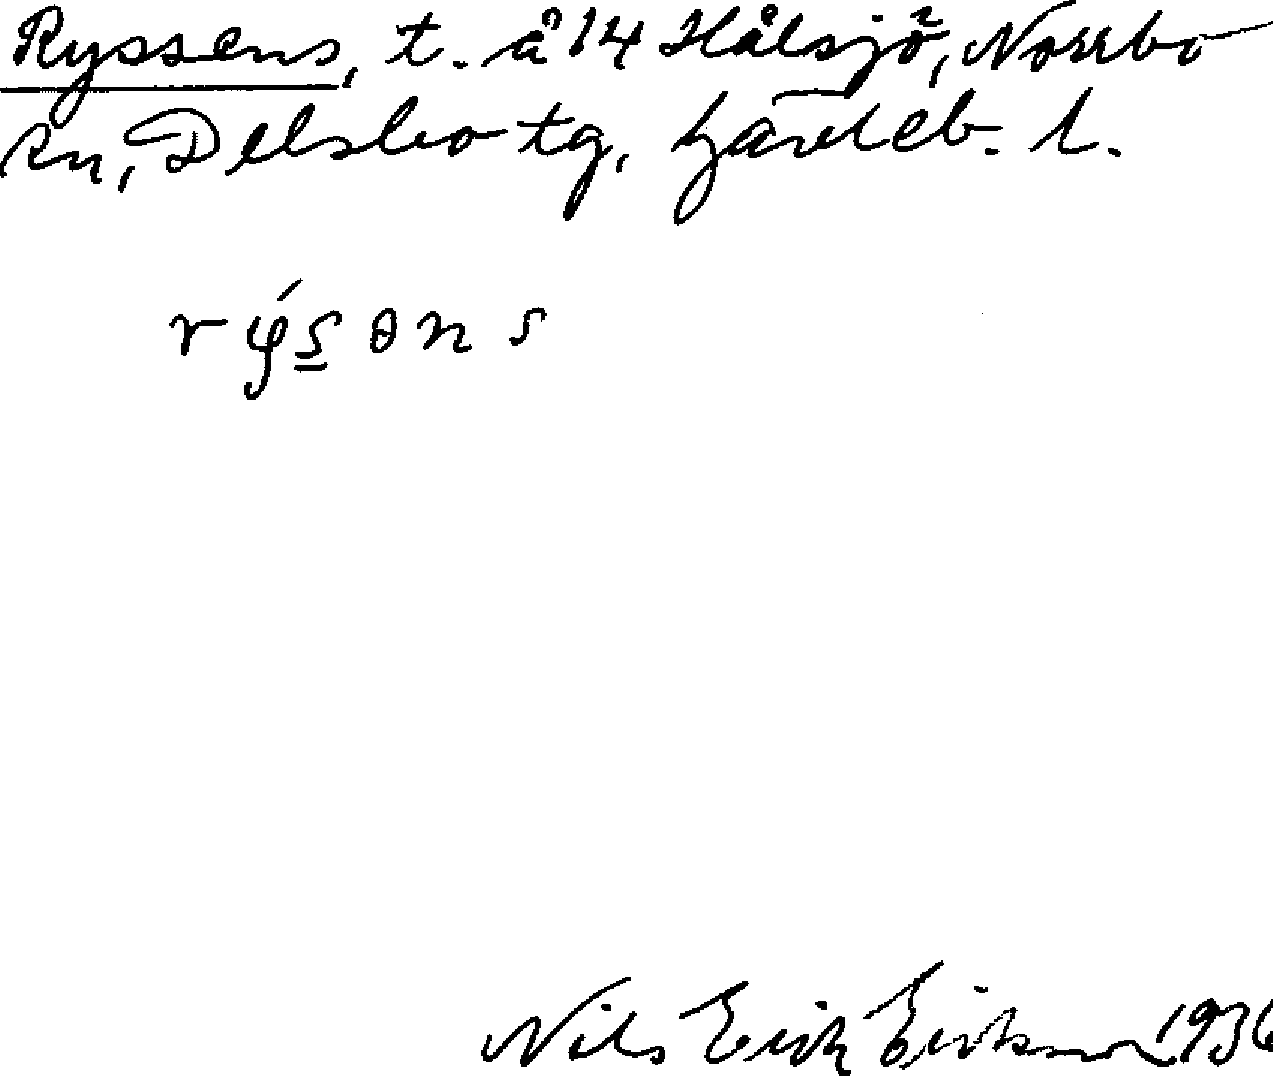 Ryssens, t. å 14 Hålsjö, Norrbo
sn, Delsbo tg, Gävleb. l.
Nils Erik Erikson 1936